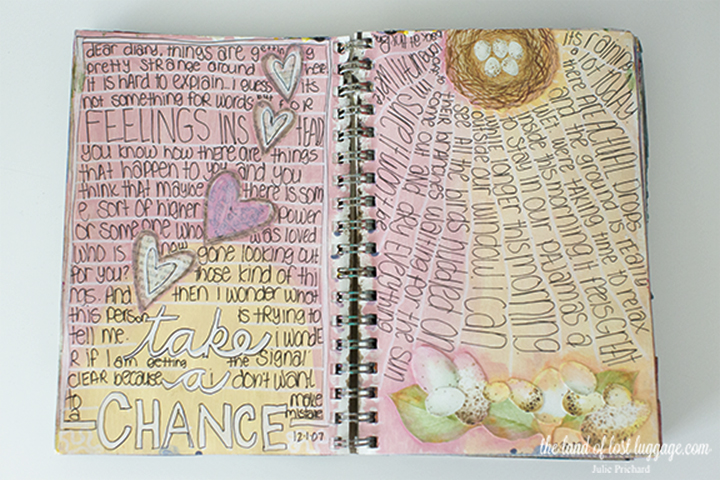 dear diary, things are getting
pretty strange around here
it is hard to explain.. I guess it's
not something for words FOR
FEELINGS INSTEAD
you know how there are things
that happen to you and you
think that maybe there is som
e sort of higher power
or someone who was loved
who is now gone looking out
for you? those kind of thi
ngs. And then I wonder what
this person is trying to
tell me. I wonde
r if I am getting the signal
clear because I don't want
to make
a mistake
take
a
CHANCE
12.1.07
its raining
a lot today
there ARE actual drops
on the ground its really
wet. we're taking time to relax
inside this morning it feels GREAT
to stay in our pajamas a
while longer this morning
outside our window I can
see all the birds huddled on
their branches waiting for the sun
to come out and dry everything
the land of lost luggage.com
Julie Prichard